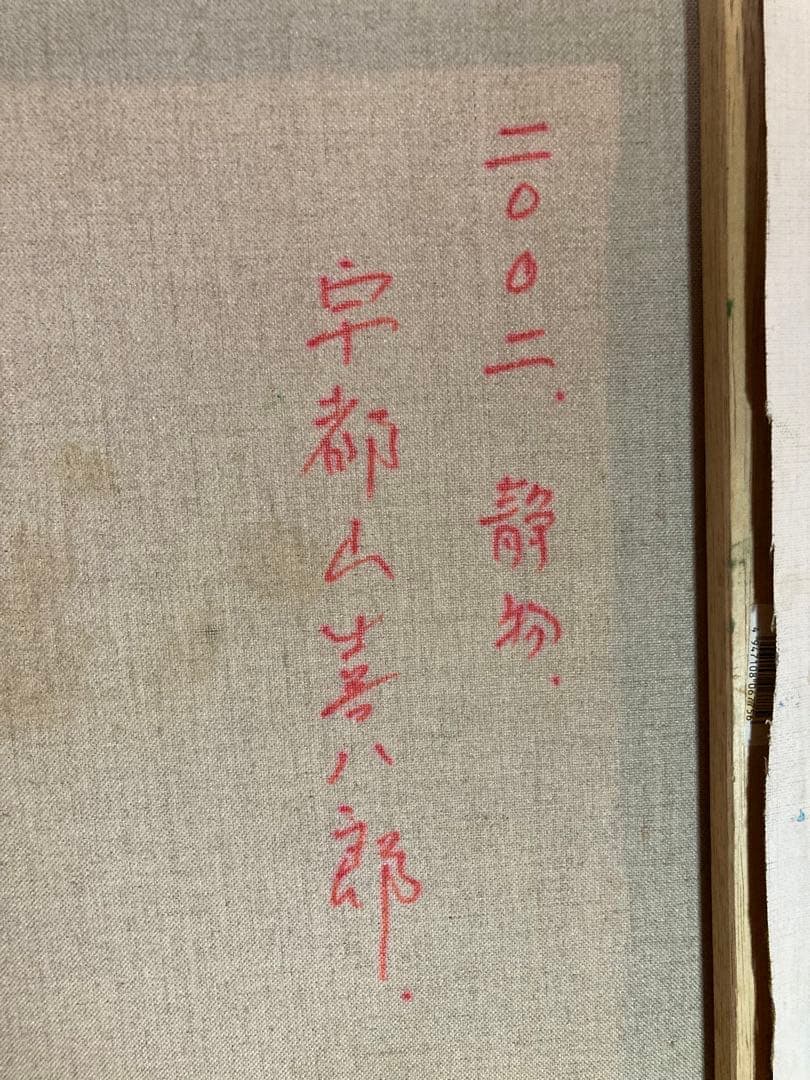 二〇〇二.　静物.
宇都山喜八郎.
4 947108